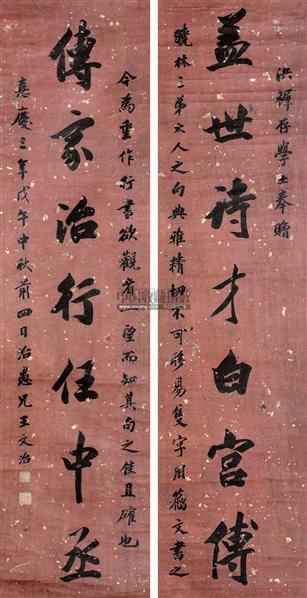 洪穉存學士奉贈
盖世詩才白宮傅
曉林三弟大人之句典雅精切不可移易隻字用籀文書之
今為重作行書欲觀者一望而知其句之佳且確也
傳家治行任中丞
嘉慶三年戊午中秋前四日治愚兄王文治